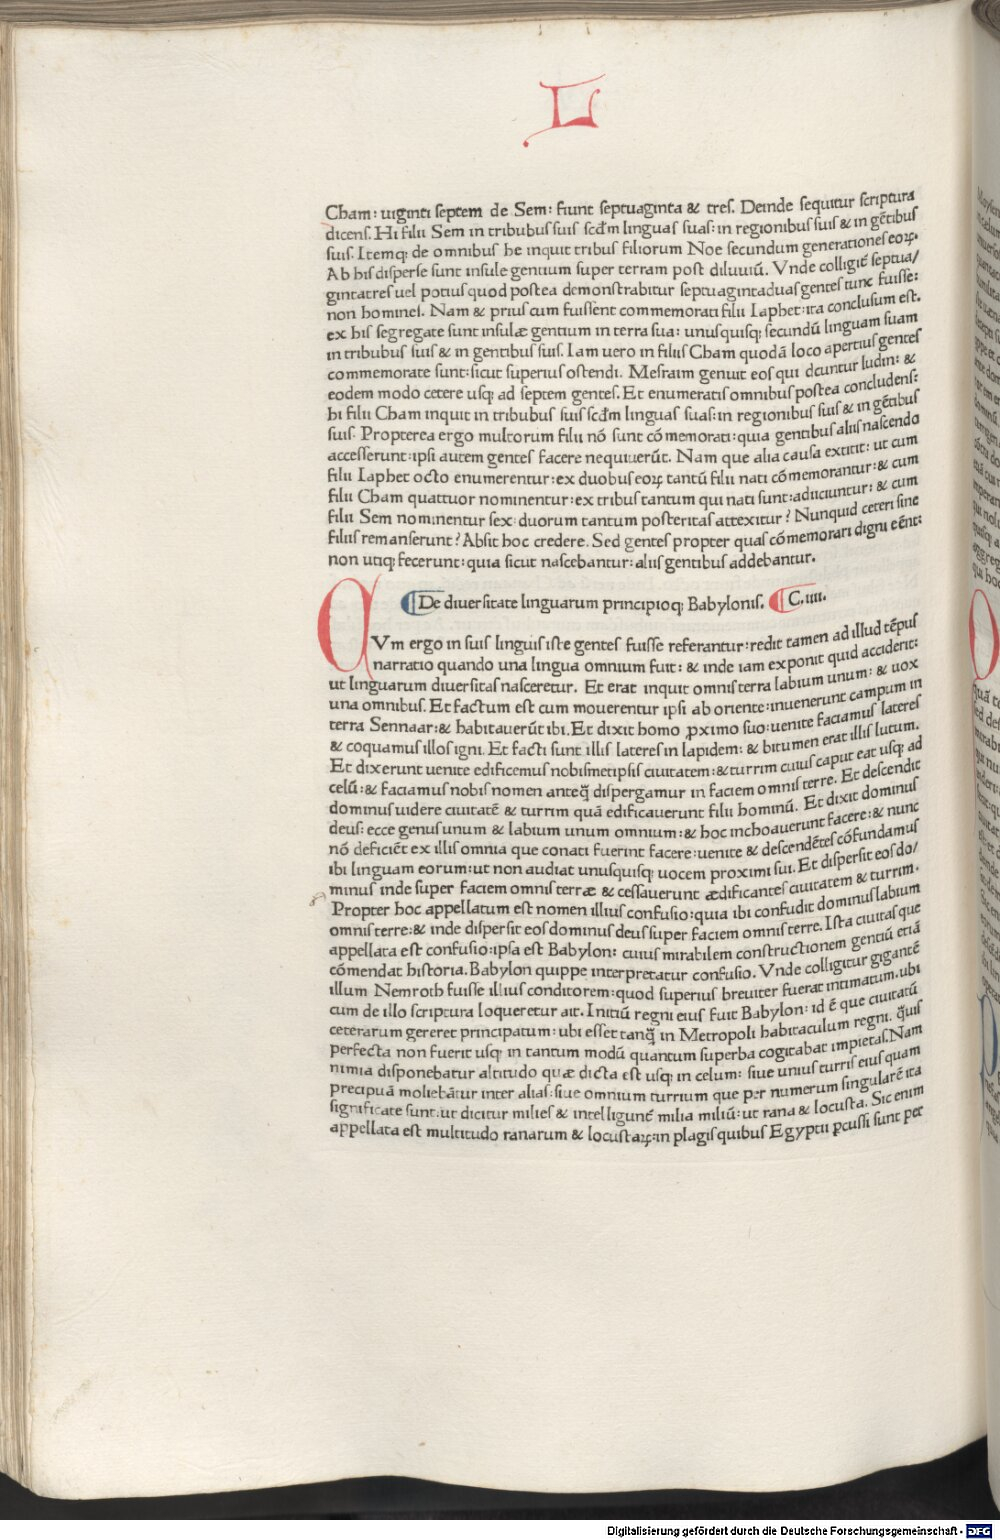 L
Cham: uiginti septem de Sem: fiunt septuaginta & tres. Deinde sequitur scriptura
dicens. Hi filii Sem in tribubus suis scd̄m linguas suas: in regionibus suis & in gētibus
suis. Itemq; de omnibus he inquit tribus filiorum Noe secundum generationes eoꝝ.
Ab his disperse sunt insule gentium super terram post diluuiū. Vnde colligit̄ septua/
gintatres uel potius quod postea demonstrabitur septuagintaduas gentes tunc fuisse:
non homines. Nam & prius cum fuissent commemorati filii Iaphet: ita conclusum est.
ex his segregate sunt insulæ gentium in terra sua: unusquisq; secundū linguam suam
in tribubus suis & in gentibus suis. Iam uero in filiis Cham quodā loco apertius gentes
commemorate sunt: sicut superius ostendi. Mesraim genuit eos qui dcuntur ludin: &
eodem modo cetere usq; ad septem gentes. Et enumeratis omnibus postea concludens:
hi filii Cham inquit in tribubus suis scd̄m linguas suas: in regionibus suis & in gētibus
suis. Propterea ergo multorum filii nō sunt cōmemorati: quia gentibus aliis nascendo
accesserunt: ipsi autem gentes facere nequiuerūt. Nam que alia causa extitit: ut cum
filii Iaphet octo enumerentur: ex duobus eoꝝ tantū filii nati cōmemorantur: & cum
filii Cham quattuor nominentur: ex tribus tantum qui nati sunt: adiiciuntur: & cum
filii Sem nominentur sex: duorum tantum posteritas attexitur? Nunquid ceteri sine
filiis remanserunt? Absit hoc credere. Sed gentes propter quas cōmemorari digni eēnt:
non utiq; fecerunt: quia sicut nascebantur: aliis gentibus addebantur.
De diuersitate linguarum principioq; Babylonis. C. iiii.
Vm ergo in suis linguis iste gentes fuisse referantur: redit tamen ad illud tēpus
narratio quando una lingua omnium fuit: & inde iam exponit quid acciderit:
ut linguarum diuersitas nasceretur. Et erat inquit omnis terra labium unum: & uox
una omnibus. Et factum est cum mouerentur ipsi ab oriente: inuenerunt campum in
terra Sennaar: & habitauerūt ibi. Et dixit homo ꝓximo suo: uenite faciamus lateres
& coquamus illos igni. Et facti sunt illis lateres in lapidem: & bitumen erat illis lutum.
Et dixerunt uenite edificemus nobismetipsis ciuitatem: & turrim cuius caput eat usq; ad
celū: & faciamus nobis nomen anteq̄ dispergamur in faciem omnis terre. Et descendit
dominus uidere ciuitatē & turrim quā edificauerunt filii hominū. Et dixit dominus
deus: ecce genus unum & labium unum omnium: & hoc inchoauerunt facere: & nunc
nō deficiēt ex illis omnia que conati fuerint facere: uenite & descendētes cōfundamus
ibi linguam eorum: ut non audiat unusquisq; uocem proximi sui. Et dispersit eos do/
minus inde super faciem omnis terræ & cessauerunt ædificantes ciuitatem & turrim.
Propter hoc appellatum est nomen illius confusio: quia ibi confudit dominus labium
omnis terre: & inde dispersit eos dominus deus super faciem omnis terre. Ista ciuitas que
appellata est confusio: ipsa est Babylon: cuius mirabilem constructionem gentiū etiā
cōmendat historia. Babylon quippe interpretatur confusio. Vnde colligitur gigantē
illum Nemroth fuisse illius conditorem: quod superius breuiter fuerat intimatum. ubi
cum de illo scriptura loqueretur ait. Initiū regni eius fuit Babylon: id ē que ciuitatū
ceterarum gereret principatum: ubi esset tanq̄ in Metropoli habitaculum regni. q̄uis
perfecta non fuerit usq; in tantum modū quantum superba cogitabat impietas. Nam
nimia disponebatur altitudo quæ dicta est usq; in celum: siue unius turris eius quam
precipuā moliebātur inter alias: siue omnium turrium que per numerum singularē ita
significate sunt: ut dicitur milies & intelligunt̄ milia miliū: ut rana & locusta. Sic enim
appellata est multitudo ranarum & locustaꝝ: in plagis quibus Egyptii ꝑcussi sunt per
Digitalisierung gefördert durch die Deutsche Forschungsgemeinschaft - DFG